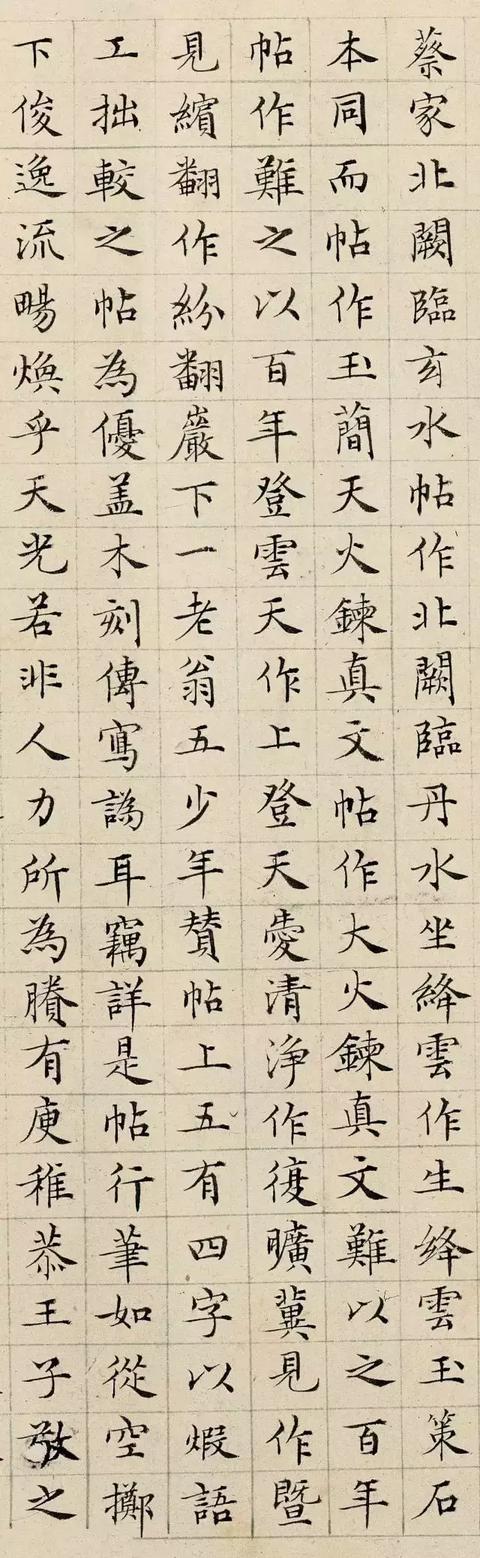 蔡家北闕臨玄水帖作北闕臨丹水坐絳雲作生絳雲玉策石
本同而帖作玉簡天火鍊真文帖作大火鍊真文難以之百年
帖作難之以百年登雲天作上登天憂清淨作復曠冀見作暨
見繽翻作紛翻巖下一老翁五少年贊帖上五有四字以煆語
工拙較之帖為優盖木刻傳寫譌耳竊詳是帖行筆如從空擲
下俊逸流暢煥乎天光若非人力所為賸有庾稚恭王子敬之